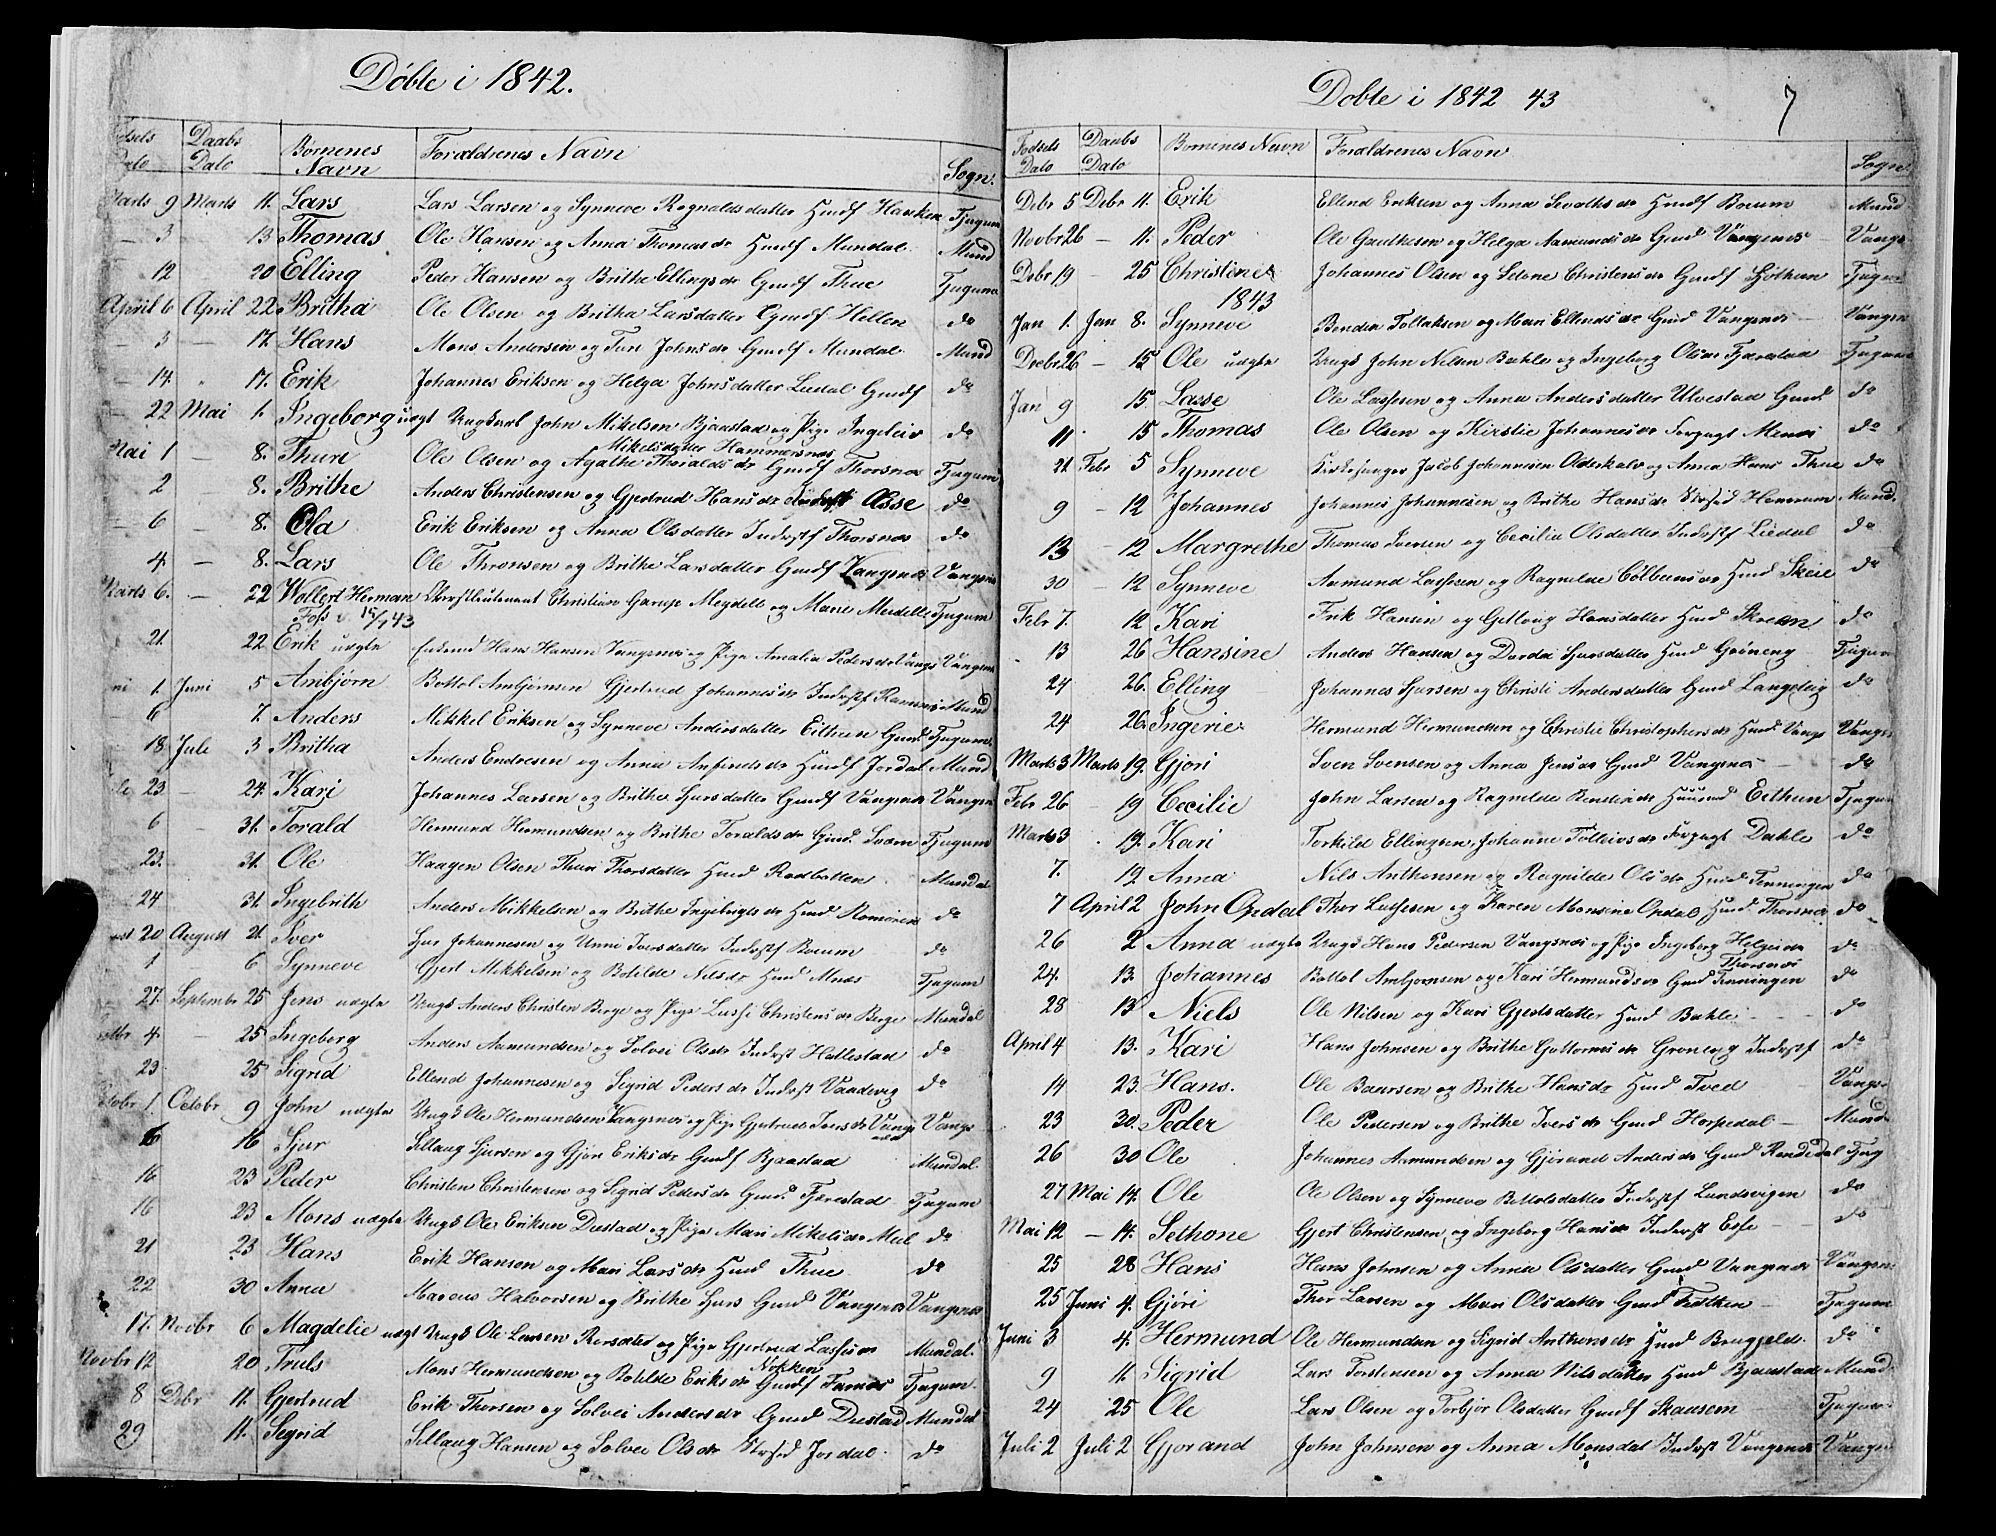 Døbte i 1842.
Daabs Dato
Børnenes Navn
Forældrenes Navn
Sogn.
Marts 9 Marts 11. Lars Lars Larsen og Synneve Ragnaldsdatter Husf Hauken Tjugum
— 3 13 Thomas Ole Hansen og Anna Thomasdr Husf Mundal. Mund
12 20 Elling Peder Hansen og Brithe Ellingsdr Gmdf Thue Tjugum
April 6 April 22 Britha Ole Olsen og Britha Larsdatter Gmdf Hellen do
— 3 — 17. Hans Mons Andersen og Turi Johnsdr Gmdf Mundal. Mund
— 14. 17. Erik Johannes Eriksen og Helga Johnsdatter Liedal Gmdf do
— 22 Mai 1. Ingeborg uægt Ungkarl John Mikelsen Bjaastad og Pige Ingeleiv Mikelsdatter Hammersnæs do
Mai 1 — 8. Thuri Ole Olsen og Agathe Thoraldsdr Gmdf Thorsnæs Tjugum
2 — 8. Brithe Anders Christensen og Gjertrud Hansdr Inderstf Esse do
— 6 8. Ola Erik Eriksen og Anna Olsdatter Inderstf Thorsnæs do
4. — 8. Lars Ole Thronsen og Brithe Larsdatter Gmdf Vangsnæs Vangsnæs
Marts 6. — 22 Wollert Herman Oberstlieutenant Christian Garup Meydell og Marie Meidell Tjugum
Foss v 15/1 43
21. 22 Erik uægte Hans Hansen Vangsnæs og Pige Amalia Pedersdr Vangs Vangsnæs
1. Juni 5 Ambjørn Bottol Ambjørnsen Gjertrud Johannesdr Inderstf Mund
6 7. Anders Mikkel Eriksen og Synneve Andersdatter Eithun Gmd Tjugum
18. Juli 3 Britha Anders Endresen og Anna Anfindsdr Husdf Jordal Mund
23. — 24. Kari Johannes Larsen og Brithe Sjursdatter Gmdf Vangsnæs Vangsn
6 — 31. Torald Hermund Hermundsen og Brithe Toraldsdr Gmd. Sværn Tjugum
23. 31. Ole Haagen Olsen Thuri Thorsdatter Husd Rødbotten. Mundal
24 31. Ingebrith Anders Mikkelsen og Brithe Ingebrigtsdr Husd Romøren do
20 August 21. Iver Sjur Johannesen og Unni Iversdatter Inderstf Bøeum do
1 — 6 Synneve Gjert Mikkelsen og Botilde Nilsdr Husd Menæs Tjugum
27. September 25 Jens uægte Ungk Anders Christen Berge og Pige Lussi Christensdr Berge Mundal
4. — 25 Ingeborg Anders Aamundsen og Solvei Olsdr Inderst Hallestad do
23 25 Sigrid Ellend Johannesen og Sigrid Pedersdr Inderst Vandevig do
Octobr 1. Octobr 9 John uægte Ungk Ole Hermundsen Vangsnæs og Pige Gjertrude Iversdr Vangsnæs Vangs
16 16 Sjur Sillaug Sjursen og Gjøri Eriksdr Gmdf Bjaastad Mundal.
16 23 Peder Christen Christensen og Sigrid Pedersdr Gmd. Fjærestad Tjugum
16 23 Mons uægte Ungk Ole Eriksen Dæestad og Pige Mari Mikelsdr Meel do
21 23 Hans Erik Hansen og Mari Larsdr Husd Thue. do
22 30 Anna Marcus Halvorsen og Brithe Sjurs Gmd Vangsnæs Vangsnæs
17. Novbr 6 Magdelie uægt Ungk Ole Larsen og Pige Gjertrud Lassesdr Nokken Mundal.
Novbr 12 20 Truls Mons Hermundsen og Botilde Eriksdr Gmdf Farnæs Tjugum.
8 Dbr 11. Gjertrud Erik Thorsen og Solvei Andersdr Gmd Dæestad Mundal
29 11. Sigrid Sillaug Hansen og Solvei Olsdr Jordal. do
Døbte i 1842 43
7
Fødsels Dato
Daabs Dato
Børnenes Navn
Forældrenes Navn
Sogne
Debr 5 Debr 11. Erik Ellend Eriksen og Anna Husdf Bøeum Mund
Novbr 26 — 11. Peder Ole Gautesen og Helga Aamundsdr Gmd Vangsnæs — Vangs
Debr 19 — 25 Christine Johannes Olsen og Selene Christensdr Gmdf Tjugum
1843
Jan 1. Jan 8. Synneve Bendix Tollaksen og Mari Ellendsdr Gmd Vangsnæs — Vangsn
Debr 26 — 15 Ole uægte Ungk John Nilsen Bahle og Ingeborg Olsdr Fjærestad Tjugum
Jan 9 15. Lasse Ole Lassesen og Anna Andersdatter Ulvestad Gmd do
11 15 Thomas Ole Olsen og Kirstie Johannesdr Forpagt Menæs do
21 Febr 5 Synneve Kirkesanger Jacob Johannesen Olderkalv og Anna Hans Thue do
9 — 12 Johannes Johannes Johannesen og Brithe Hansdr Mund.
13 — 12 Margrethe Thomas Iversen og Cecilia Olsdatter Inderstf Liedal do
30 12 Synneve Aamund Lassesen og Ragnilde Colbensdr Husd Skeie do
Febr 7. 12 Kari Erik Hansen og Gittoug Hansdatter Husd do
13 26 Hansine Anders Hansen og Dorde Sjursdatter Husd Grøneng Tjugum
24 26. Elling Johannes Sjursen og Christi Andersdatter Gmd Langeteig do
24 26. Ingerie. Hermund Hermundsen og Christie Christophersdr Husd Vangs Vangsn
Marts 3 Marts 19. Gjøri Sven Svensen og Anna Jensdr Gmd Vangsnæs — do
Febr 26 — 19 Cecilie John Larsen og Ragnilde Eithun Tjugum
Marts 3 . 19. Kari Torkild Ellingsen, Johanne Tolleivsdr Forpagt Dahle do
7. 19 Anna Nils Anthonsen og Ragnilde Olsdr Husd Tenningen do
7 April 2 John Opdal Thor Lassesen og Karen Monsine Opdal Husd Thorsnæs do
26 2 Anna uægte Ungk Hans Pedersen Vangsnæs og Pige Ingeborg Helgesdr Thorsnæs do
24. 13. Johannes Bottol Ambjørnsen og Kari Hermundsdr Gmd Tenningen do
28 13 Niels Ole Nilsen og Kari Gjertsdatter Husd Bahle — do
April 4 13. Kari Hans Johnsen og Brithe Guttormsdr Inderstf do
14 23. Hans. Ole Baarsen og Brithe Hansdr Husd Tved Vangs
23 30. Peder Ole Pedersen og Brithe Iversdr Gmd Horpedal — Mund
26 30 Ole Johannes Aamundsen og Gjørand Andersdr Gmd Rendedal Tjug
27 Mai 14. Ole Ole Olsen og Synneva Bottolsdatter Inderstf Lundevigen do
Mai 12 — 14. Sethone Gjert Christensen og Ingeborg Hansdr Inderst Esse — do
25 28 Hans Hans Johnsen og Anna Olsdatter Gmd Vangsnæs Vangsn
25 Juni 4. Gjøri Thor Larsen og Mari Olsdatter Gmd — Tjugum
Juni 3 4. Hermund Ole Hermundsen og Sigrid Anthonsdr Husd Bruggjeld. do
9 11. Sigrid Lars Torstensen og Anna Nilsdatter Husd Bjaastad Mund
24 25 Ole Lars Olsen og Torbjør Olsdatter Gmdf Skaasem Tjugum
Juli 2 Juli 2 Gjørand John Johnsen og Anna Monsdat Inderst Vangsnæs Vangsn